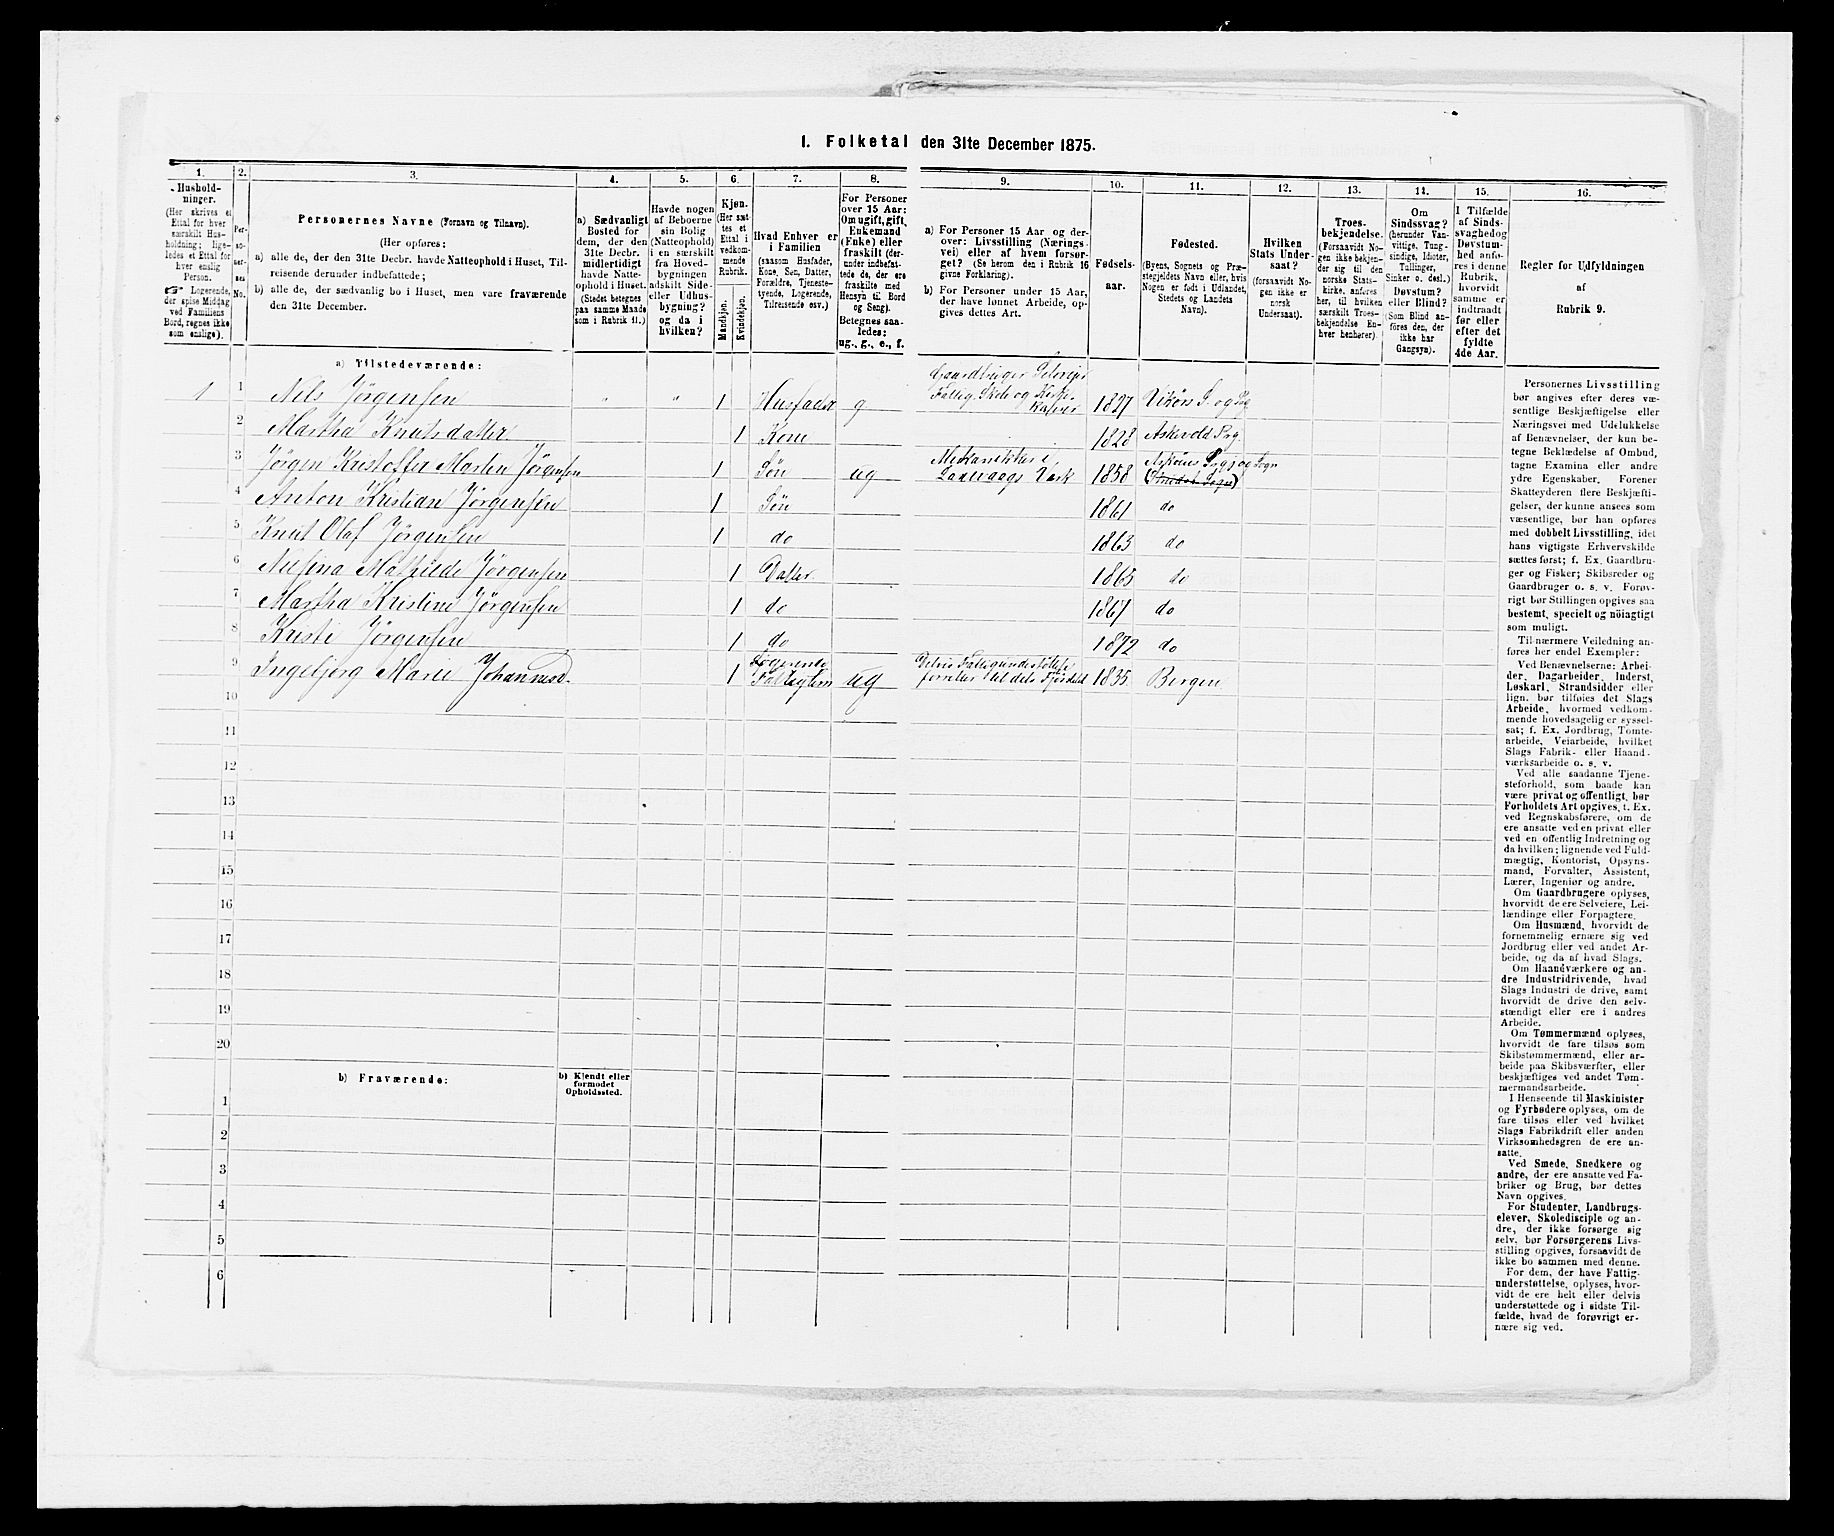 I. Folketal den 31te December 1875.
1.
Hushold-
ninger.
(Her skrives et
Ettal for hver
særskilt Hus-
holdning; lige-
ledes et Ettal for
hver enslig
Person.
☞ Logerende,
der spise Middag
ved Familiens
Bord, regnes ikke
som enslige).
2.
Per-
so-
ner-
nes
No.
3.
Personernes Navne (Fornavn og Tilnavn).
(Her opføres:
a) alle de, der den 31te Decbr. havde Natteophold i Huset, Til-
reisende derunder indbefattede;
b) alle de, der sædvanlig bo i Huset, men vare fraværende
den 31te December.
4.
a) Sædvanligt
Bosted for
dem, der den
31te Decbr.
midlertidigt
havde Natte-
ophold i Huset.
(Stedet betegnes
paa samme Maade
som i Rubrik 11.)
5.
Havde nogen
af Beboerne
sin Bolig
(Natteophold)
i en særskilt
fra Hoved-
bygningen
adskilt Side-
eller Udhus-
bygning?
og da i
hvilken?
6.
Kjøn.
(Her sæt-
tes et
Ettal i
vedkom-
mende
Rubrik.
Mandkjøn.
Kvindekjøn.
7.
Hvad Enhver er
i Familien
(saasom Husfader,
Kone, Søn, Datter,
Forældre, Tjeneste-
tyende, Logerende,
Tilreisende osv.)
8.
For Personer
over 15 Aar:
Om ugift, gift,
Enkemand
(Enke) eller
fraskilt (der-
under indbefat-
tede de, der ere
fraskilte med
Hensyn til Bord
og Seng).
Betegnes saa-
ledes:
ug., g., e., f.
9.
a) For Personer 15 Aar og der-
over: Livsstilling (Nærings-
vei) eller af hvem forsør-
get? (Se herom den i Rubrik 16
givne Forklaring).
b) For Personer under 15 Aar,
der have lønnet Arbeide, op-
gives dettes Art.
10.
Fødsels-
aar.
11.
Fødested.
(Byens, Sognets og Præ-
stegjeldets Navn eller, hvis
Nogen er født i Udlandet,
Stedets og Landets
Navn).
12.
Hvilken
Stats Under-
saat?
(forsaavidt No-
gen ikke er
norsk
Undersaat).
13.
Troes-
bekjendelse.
(Forsaavidt No-
gen ikke bekjen-
der sig til den
norske Stats-
kirke, anføres
her, til hvilken
særskilt Troes-
bekjendelse En-
hver henhører).
14.
Om
Sindssvag?
(herunder Van-
vittige, Tung-
sindige, Idioter,
Tullinger,
Sinker o. desl.)
Døvstum?
eller Blind?
(Som Blind an-
føres den, der
ikke har
Gangsyn).
15.
I Tilfælde
af Sinds-
svaghed og
Døvstum-
hed anfø-
res i denne
Rubrik,
hvorvidt
samme er
indtraadt
før eller
efter det
fyldte
4de Aar.
16.
Regler for Udfyldningen
af
Rubrik 9.
a) Tilstedeværende:
1 1 Nils Jörgensen " " 1 Husfader g Gaardbruger Selveier Fattig, Skole og Kirke- Kaserer 1827 Vikörs S. og Pg
2 Martha Knutsdatter 1 Kone 1828 Askevold Prg
3 Jörgen Kristoffer Martin Jörgensen 1 Sön ug Mekanikker i Laxevaags Værk 1858 Asköens Prgj og Sogn
4 Anton Kristian Jörgensen 1 Sön 1861 do
5 Knut Olaf Jörgensen 1 do 1863 do
6 Nilsina Mathilde Jörgensen 1 Datter 1865 do
7 Martha Kristine Jörgensen 1 do 1867 do
8 Kristi Jörgensen 1 do 1872 do
9 Ingebjorg Marie Johannesd. 1 Logerende Fattiglem ug Delvis Fattigunderstøttelse forretter lidt 1835 Bergen
10
11
12
13
14
15
16
17
18
19
20
b) Fraværende:
b) Kjendt eller
formodet
Opholdssted.
1
2
3
4
5
6
Personernes Livsstilling
bør angives efter deres væ-
sentlige Beskjæftigelse eller
Næringsvei med Udelukkelse
af Benævnelser, der kun be-
tegne Beklædelse af Ombud,
tagne Examina eller andre
ydre Egenskaber. Forener
Skatteyderen flere Beskjæfti-
gelser, der kunne ansees som
væsentlige, bør han opføres
med dobbelt Livsstilling, idet
hans vigtigste Erhvervskilde
sættes først; f. Ex. Gaardbru-
ger og Fisker; Skibsreder og
Gaardbruger o. s. v. Forøv-
rigt bør Stillingen opgives saa
bestemt, specielt og nöiagtigt
som muligt.
Til nærmere Veiledning an-
føres her endel Exempler:
Ved Benævnelserne: Arbei-
der, Dagarbeider, Inderst,
Løskarl, Strandsidder eller
lign. bør tilføies det Slags
Arbeide, hvormed vedkom-
mende hovedsagelig er syssel-
sat; f. Ex. Jordbrug, Tomte-
arbeide, Veiarbeide, hvilket
Slags Fabrik- eller Haand-
værksarbeide o. s. v.
Ved alle saadanne Tjene-
steforhold, som baade kan
være privat og offentligt, bør
Forholdets Art opgives, t. Ex.
ved Regnskabsførere, om de
ere ansatte ved en privat eller
ved en offentlig Indretning og
da hvilken; lignende ved Fuld-
mægtig, Kontorist, Opsyns-
mand, Forvalter, Assistent,
Lærer, Ingeniør og andre.
Om Gaardbrugere oplyses,
hvorvidt de ere Selveiere, Lei-
lændinge eller Forpagtere.
Om Husmænd, hvorvidt de
fornemmelig ernære sig ved
Jordbrug eller ved andet Ar-
beide, og da af hvad Slags.
Om Haandværkere og an-
dre Industridrivende, hvad
Slags Industri de drive, samt
hvorvidt de drive den selv-
stændigt eller ere i andres
Arbeide.
Om Tømmermænd oplyses,
hvorvidt de fare tilsøs som
Skibstømmermænd, eller ar-
beide paa Skibsværfter, eller
beskjæftiges ved andet Tøm-
mermandsarbeide.
I Henseende til Maskinister
og Fyrbødere oplyses, om de
fare tilsøs eller ved hvilket
Slags Fabrikdrift eller anden
Virksomhedsgren de ere an-
satte.
Ved Smede, Snedkere og
andre, der ere ansatte ved Fa-
briker og Brug, bør dettes
Navn opgives.
For Studenter, Landbrugs-
elever, Skoledisciple og an-
dre, der ikke forsørge sig
selv, bør Forsørgerens Livs-
stilling opgives, forsaavidt de
ikke bo sammen med denne.
For dem, der have Fattig-
understøttelse, oplyses, hvor-
vidt de ere helt eller delvis
understøttede og i sidste Til-
fælde, hvad de forøvrigt er-
nære sig ved.